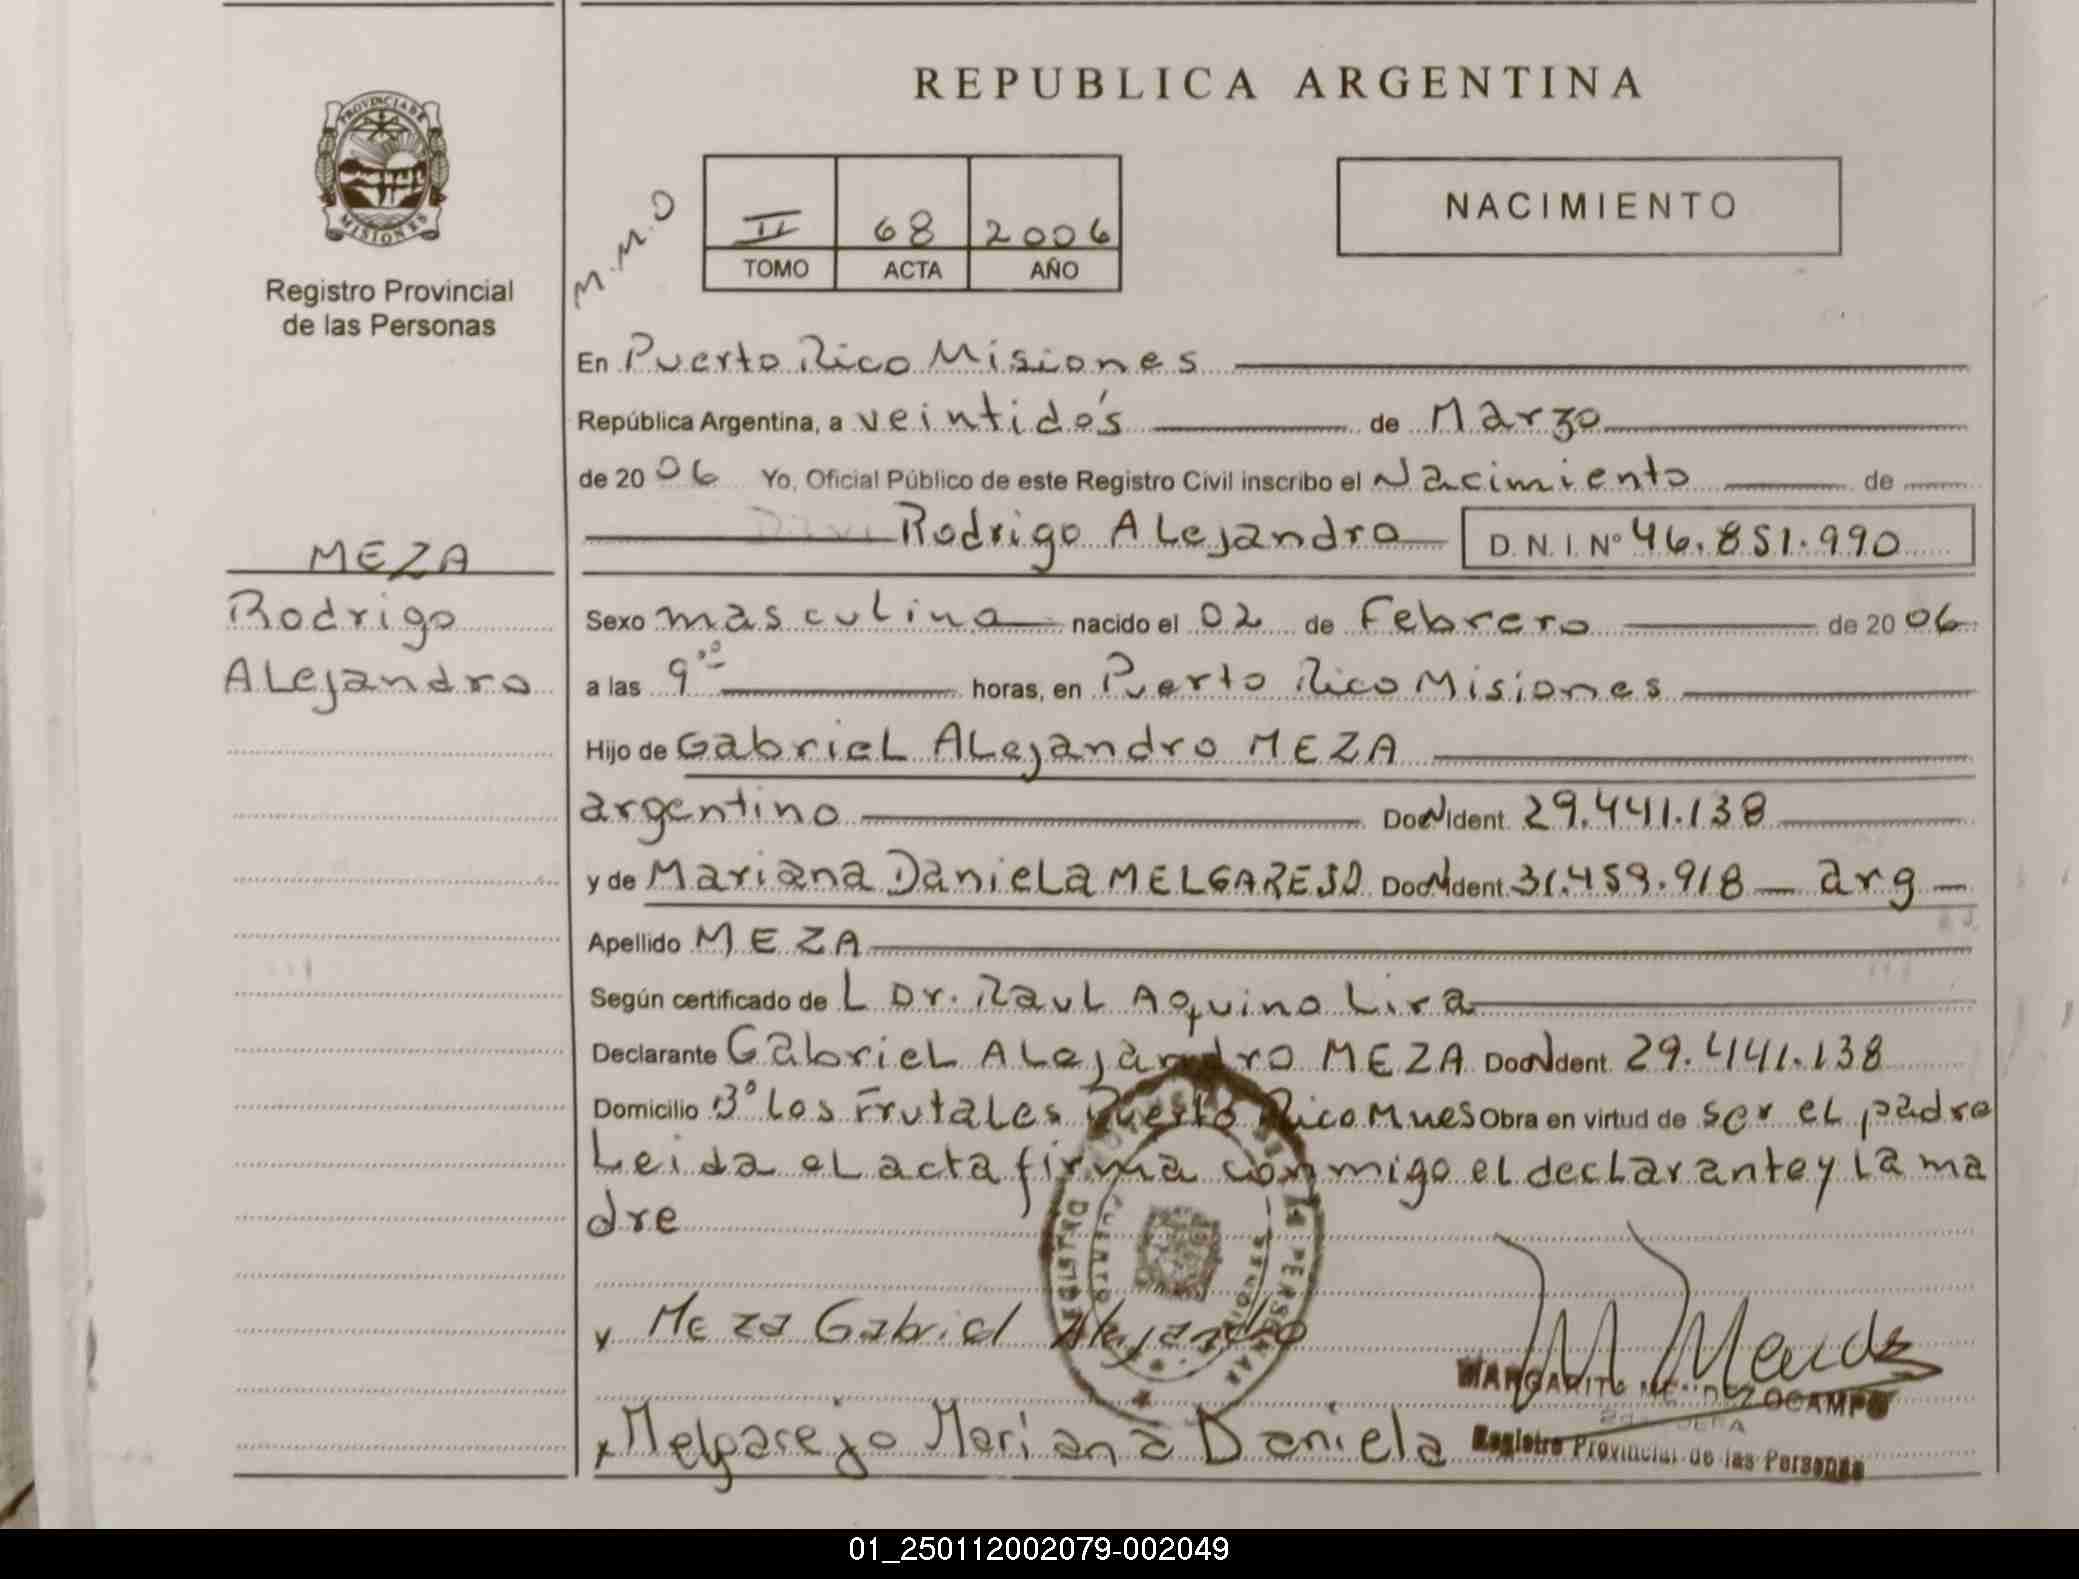 REPUBLICA ARGENTINA
PROVINCIA DE
MISIONES
Registro Provincial
de las Personas
M.M.O
II 68 2006
TOMO ACTA AÑO
NACIMIENTO
En Puerto Rico Misiones
República Argentina, a veintidós de Marzo
de 2006 Yo, Oficial Público de este Registro Civil inscribo el Nacimiento de
Rodrigo Alejandro D.N.I. Nº 46.851.990
MEZA
Rodrigo
Alejandro
Sexo masculino nacido el 02 de Febrero de 2006
a las 9:00 horas, en Puerto Rico Misiones
Hijo de Gabriel Alejandro MEZA
argentino Doc N Ident. 29.441.138
y de Mariana Daniela MELGAREJO Doc N Ident. 31.459.918 arg
Apellido MEZA
Según certificado de L Dr. Raul Aquino Lira
Declarante Gabriel Alejandro MEZA Doc N Ident. 29.441.138
Domicilio Bº Los Frutales Puerto Rico Mnes Obra en virtud de ser el padre
Leida el acta firma conmigo el declarante y la ma
dre
Meza Gabriel Alejandro
Melgarejo Mariana Daniela
M Mendez
MARGARITO MENDEZ OCAMPO
Registro Provincial de las Personas
01_250112002079-002049